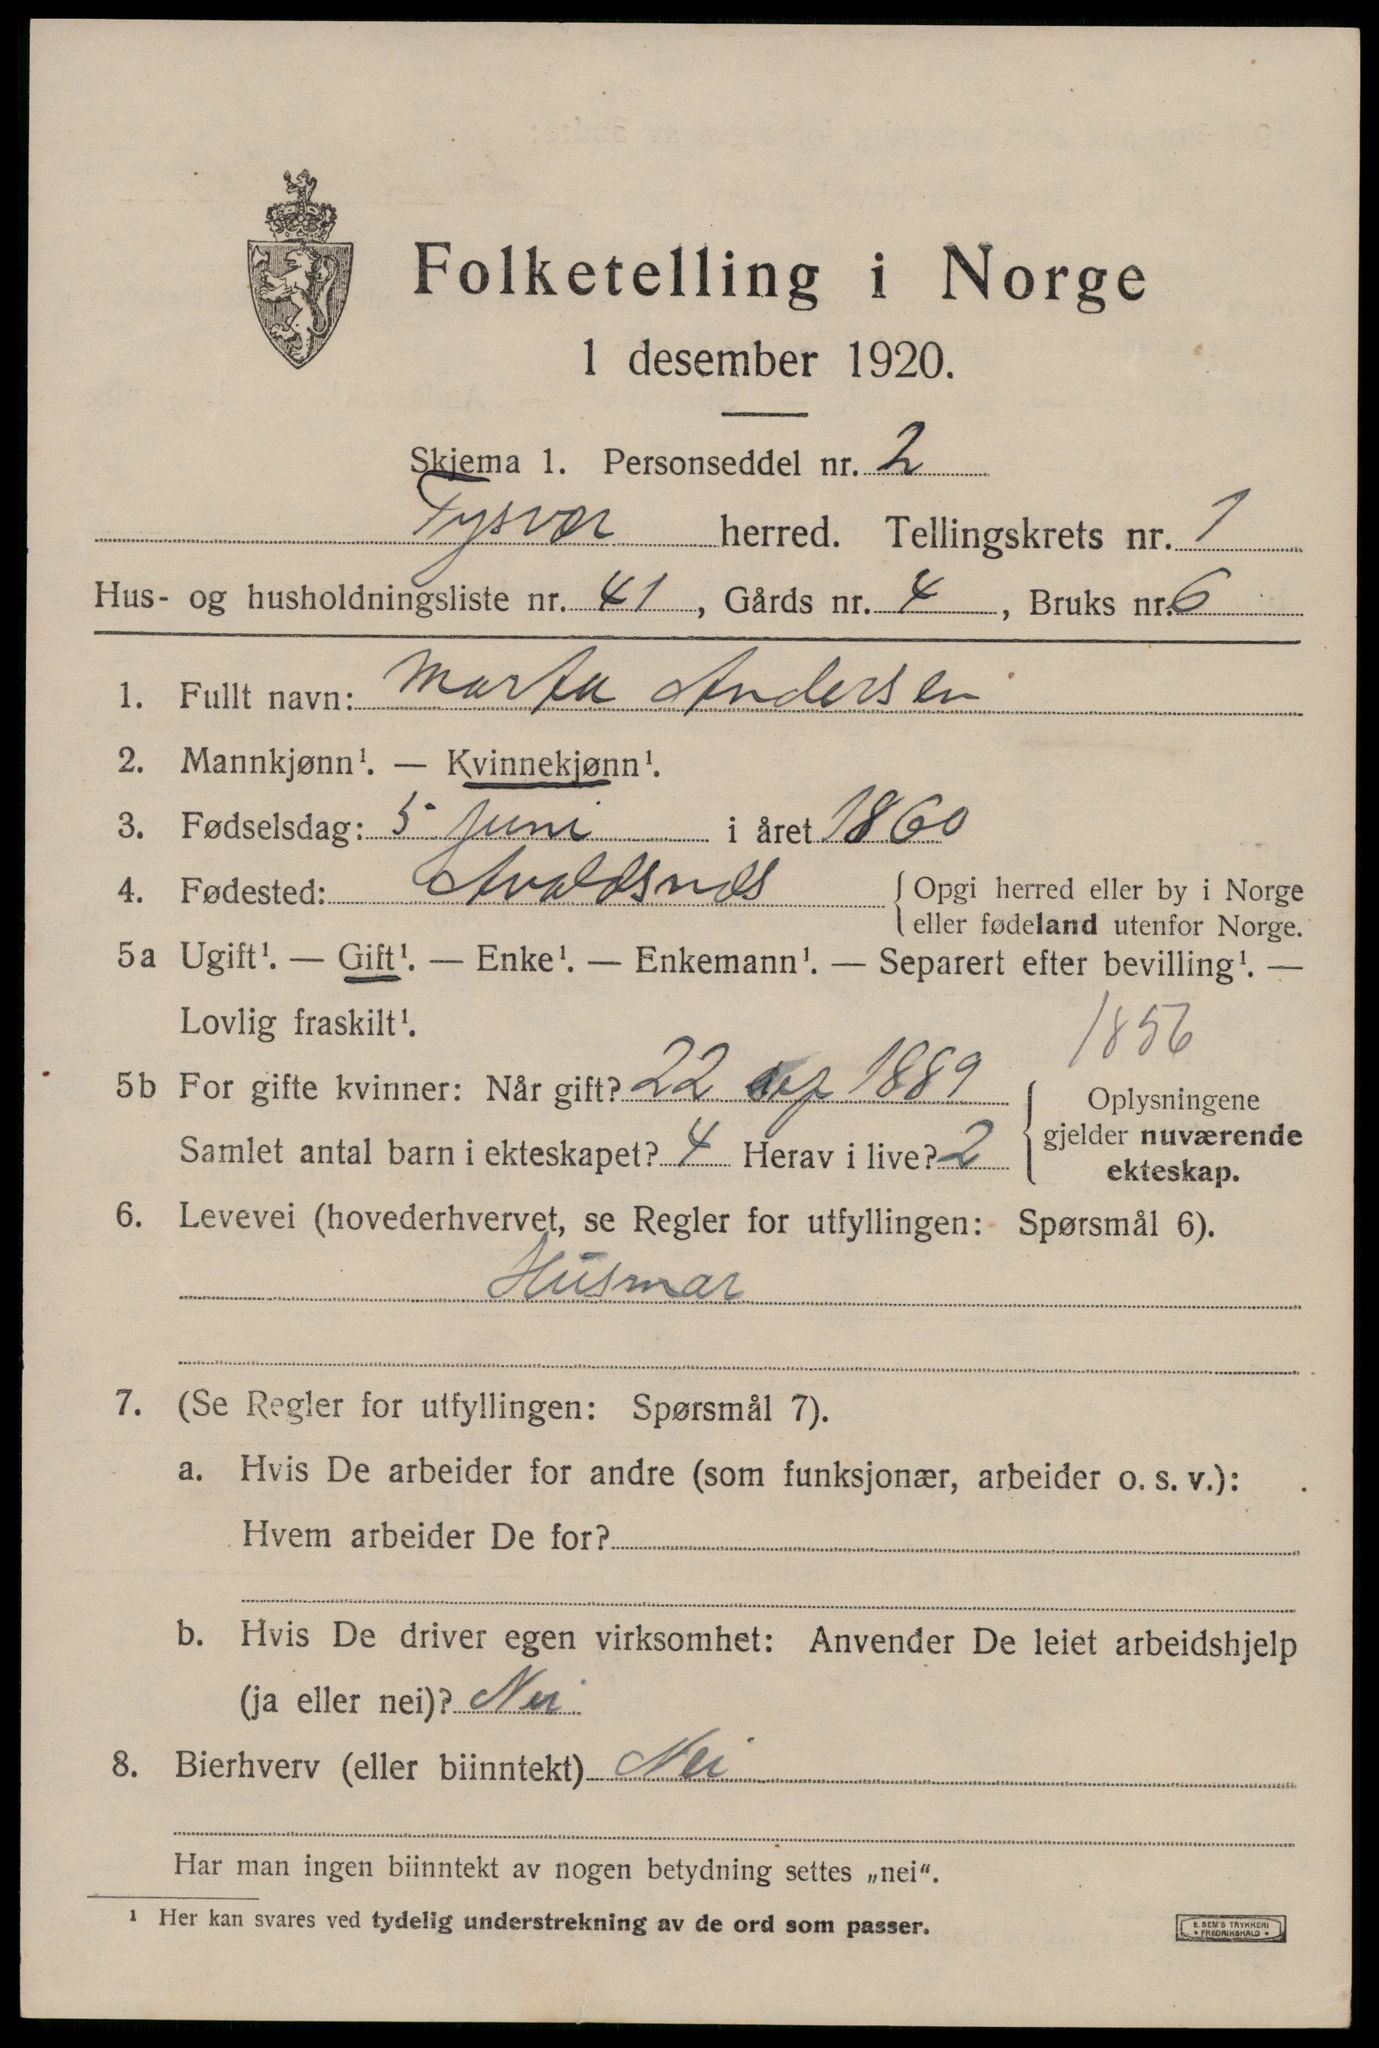 Folketelling i Norge
1 desember 1920.
Skjema 1. Personseddel nr. 2
Tysvær herred. Tellingskrets nr. 1
Hus- og husholdningsliste nr. 41, Gårds nr. 4, Bruks nr. 6
1. Fullt navn: Marta Andersen
2. Mannkjønn¹. — Kvinnekjønn¹.
3. Fødselsdag: 5 juni i året 1860
4. Fødested: Avaldsnes { Opgi herred eller by i Norge
eller fødeland utenfor Norge.
5a Ugift¹. — Gift¹. — Enke¹. — Enkemann¹. — Separert efter bevilling¹. —
Lovlig fraskilt¹.
1856
5b For gifte kvinner: Når gift? 22 sep 1889
Samlet antal barn i ekteskapet? 4 Herav i live? 2
{ Oplysningene
gjelder nuværende
ekteskap.
6. Levevei (hovederhvervet, se Regler for utfyllingen: Spørsmål 6).
Husmor
7. (Se Regler for utfyllingen: Spørsmål 7).
a. Hvis De arbeider for andre (som funksjonær, arbeider o. s. v.):
Hvem arbeider De for?
b. Hvis De driver egen virksomhet: Anvender De leiet arbeidshjelp
(ja eller nei)? Nei
8. Bierhverv (eller biinntekt) Nei
Har man ingen biinntekt av nogen betydning settes „nei“.
¹ Her kan svares ved tydelig understrekning av de ord som passer.
E. SEM'S TRYKKERI
* FREDRIKSHALD *